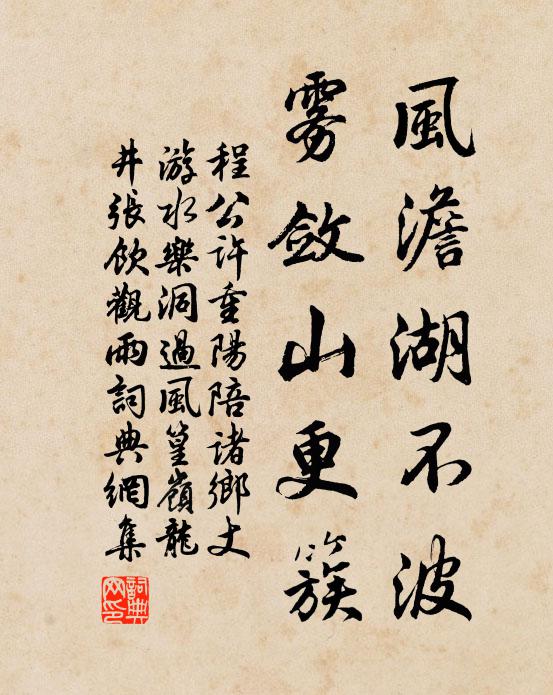 風澹湖不波
雾斂山更簇
程公許重陽陪諸鄉丈
游水樂洞過風篁嶺龍
井張飲觀雨詞典網集
詞典
网印